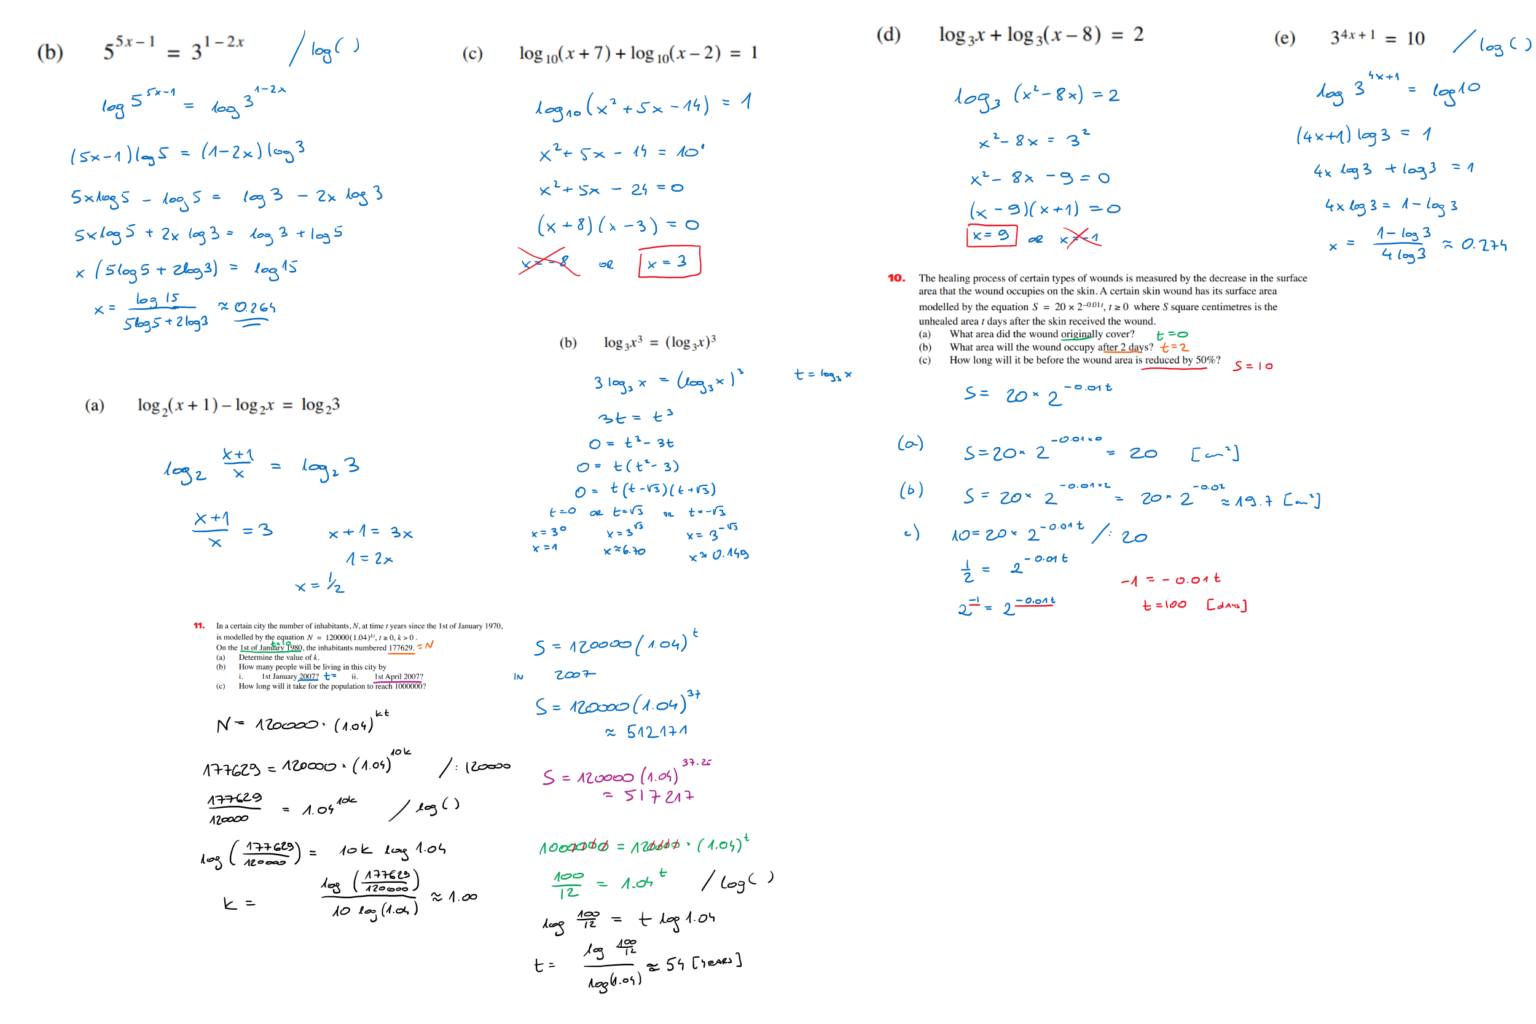 (b) 5^{5x−1} = 3^{1−2x} / log( )
log 5^{5x-1} = log 3^{1-2x}
(5x-1)log5 = (1-2x)log3
5xlog5 - log5 = log3 - 2x log3
5xlog5 + 2x log3 = log3 + log5
x (5log5 + 2log3) = log15
x = log 15 / (5log5 + 2log3) ≈ 0.264
(c) log₁₀(x + 7) + log₁₀(x − 2) = 1
log₁₀(x² + 5x - 14) = 1
x² + 5x - 14 = 10¹
x² + 5x - 24 = 0
(x + 8)(x - 3) = 0
x = -8 OR x = 3
(d) log₃x + log₃(x − 8) = 2
log₃ (x² - 8x) = 2
x² - 8x = 3²
x² - 8x - 9 = 0
(x - 9)(x + 1) = 0
x = 9 OR x = -1
(e) 3^{4x+1} = 10 / log( )
log 3^{4x+1} = log10
(4x+1) log3 = 1
4x log3 + log3 = 1
4x log3 = 1 - log3
x = (1 - log3) / (4 log3) ≈ 0.274
(a) log₂(x + 1) − log₂x = log₂3
log₂ (x+1)/x = log₂ 3
(x+1)/x = 3 x + 1 = 3x
1 = 2x
x = 1/2
(b) log₃x³ = (log₃x)³
3 log₃ x = (log₃ x)³ t = log₃ x
3t = t³
0 = t³ - 3t
0 = t(t² - 3)
0 = t(t-√3)(t+√3)
t=0 OR t=√3 OR t=-√3
x = 3⁰ x = 3^{√3} x = 3^{-√3}
x = 1 x ≈ 6.70 x ≈ 0.149
10. The healing process of certain types of wounds is measured by the decrease in the surface
area that the wound occupies on the skin. A certain skin wound has its surface area
modelled by the equation S = 20 × 2^{−0.01t}, t ≥ 0 where S square centimetres is the
unhealed area t days after the skin received the wound.
(a) What area did the wound originally cover? t=0
(b) What area will the wound occupy after 2 days? t=2
(c) How long will it be before the wound area is reduced by 50%? S=10
S = 20 × 2^{-0.01t}
(a) S = 20 × 2^{-0.01×0} = 20 [cm²]
(b) S = 20 × 2^{-0.01×2} = 20 × 2^{-0.02} ≈ 19.7 [cm²]
c) 10 = 20 × 2^{-0.01t} / : 20
1/2 = 2^{-0.01t}
2^{-1} = 2^{-0.01t}
-1 = -0.01t
t = 100 [days]
11. In a certain city the number of inhabitants, N, at time t years since the 1st of January 1970,
is modelled by the equation N = 120000(1.04)^{kt}, t ≥ 0, k > 0.
t=10
On the 1st of January 1980, the inhabitants numbered 177629. = N
(a) Determine the value of k.
(b) How many people will be living in this city by
i. 1st January 2007? t= ii. 1st April 2007?
(c) How long will it take for the population to reach 1000000?
N = 120000 · (1.04)^{kt}
177629 = 120000 · (1.04)^{10k} / : 120000
177629/120000 = 1.04^{10k} / log( )
log (177629/120000) = 10k log 1.04
k = log (177629/120000) / 10 log(1.04) ≈ 1.00
S = 120000 (1.04)^t
IN 2007
S = 120000 (1.04)^{37}
≈ 512171
S = 120000 (1.04)^{37.25}
≈ 517217
1000000 = 120000 · (1.04)^t
100/12 = 1.04^t / log( )
log 100/12 = t log 1.04
t = log 100/12 / log(1.04) ≈ 54 [years]